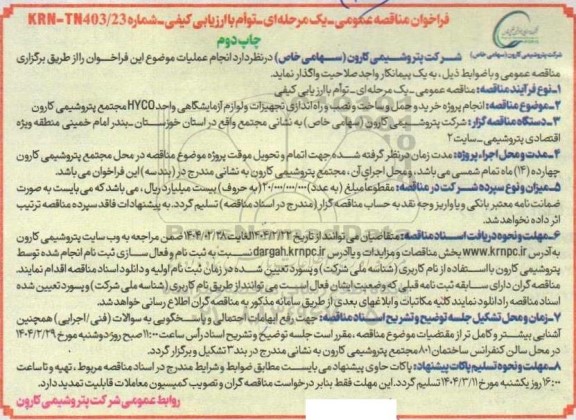 فراخوان مناقصه عمومی_یک مرحله‌ای_توأم با ارزیابی کیفی_شماره KRN-TN403/23
چاپ دوم
شرکت پتروشیمی کارون (سهامی خاص)
شرکت پتروشیمی کارون (سهامی خاص) درنظر دارد انجام عملیات موضوع این فراخوان را از طریق برگزاری
مناقصه عمومی و با ضوابط ذیل، به یک پیمانکار واجد صلاحیت واگذار نماید.
۱-نوع فرآیند مناقصه: مناقصه عمومی - یک مرحله‌ای - توأم با ارزیابی کیفی
۲-موضوع مناقصه: انجام پروژه خرید و حمل و ساخت و نصب و راه اندازی تجهیزات و لوازم آزمایشگاهی واحد HYCO مجتمع پتروشیمی کارون
۳-دستگاه مناقصه گزار: شرکت پتروشیمی کارون (سهامی خاص) به نشانی مجتمع واقع در استان خوزستان-بندر امام خمینی منطقه ویژه
اقتصادی پتروشیمی-سایت ۲
۴-مدت و محل اجراء پروژه: مدت زمان درنظر گرفته شده جهت اتمام و تحویل موقت پروژه موضوع مناقصه در محل مجتمع پتروشیمی کارون
چهارده (۱۴) ماه تمام شمسی می‌باشد، و محل اجرای آن، مجتمع پتروشیمی کارون به نشانی مندرج در (بند سه) این فراخوان می باشد.
۵-میزان و نوع سپرده شرکت در مناقصه: مقطوعا مبلغ (به عدد) ۲۰/۰۰۰/۰۰۰/۰۰۰ (به حروف) بیست میلیارد ریال، می باشد که می بایست به صورت
ضمانت نامه معتبر بانکی و یا واریز وجه نقد به حساب مناقصه گزار (مندرج در اسناد مناقصه) تسلیم گردد. به پیشنهادات فاقد سپرده مناقصه ترتیب
اثر داده نخواهد شد.
۶-مهلت و نحوه دریافت اسناد مناقصه: متقاضیان می توانند از تاریخ ۱۴۰۴/۲/۲۲ لغایت ۱۴۰۴/۰۲/۲۸ ضمن مراجعه به وب سایت پتروشیمی کارون
به آدرس www.krnpc.ir بخش مناقصات و مزایدات و یا آدرس dargah.krnpc.ir نسبت به ثبت نام و فعال سازی ثبت نام انجام شده توسط
پتروشیمی کارون با استفاده از نام کاربری (شناسه ملی شرکت) و پسورد تعیین شده در زمان ثبت نام اولیه و دانلود اسناد مناقصه اقدام نمایند.
مناقصه گران دارای سابقه ثبت نامه قبلی که وضعیت ایشان فعال است می توانند از طریق نام کاربری (شناسه ملی شرکت) و پسورد تعیین شده
اسناد مناقصه را دانلود نمایند کلیه مکاتبات و ابلاغهای بعدی از طریق سامانه مذکور به مناقصه گران اطلاع رسانی خواهد شد.
۷-زمان و محل تشکیل جلسه توضیح و تشریح اسناد مناقصه: جهت رفع ابهامات احتمالی و پاسخگویی به سوالات (فنی/اجرایی) همچنین
آشنایی بیشتر و کامل تر از مقتضیات موضوع مناقصه، مقرر است جلسه توضیح و تشریح اسناد رأس ساعت ۱۱:۰۰ صبح روز دوشنبه مورخ ۱۴۰۴/۲/۲۹
در محل سالن کنفرانس ساختمان ۸۰۱ مجتمع پتروشیمی کارون به نشانی مندرج در بند ۳ تشکیل و برگزار گردد.
۸-مهلت و نحوه تسلیم پاکات پیشنهاد: پاکات حاوی پیشنهاد می بایست مطابق ضوابط و شرایط مندرج در اسناد مناقصه مربوط، تهیه و تا ساعت
۱۶:۰۰ روز یکشنبه مورخ ۱۴۰۴/۳/۱۱ تسلیم گردد. این مهلت فقط بنابر درخواست مناقصه گران و تصویب کمیسیون معاملات قابلیت تمدید دارد.
روابط عمومی شرکت پتروشیمی کارون